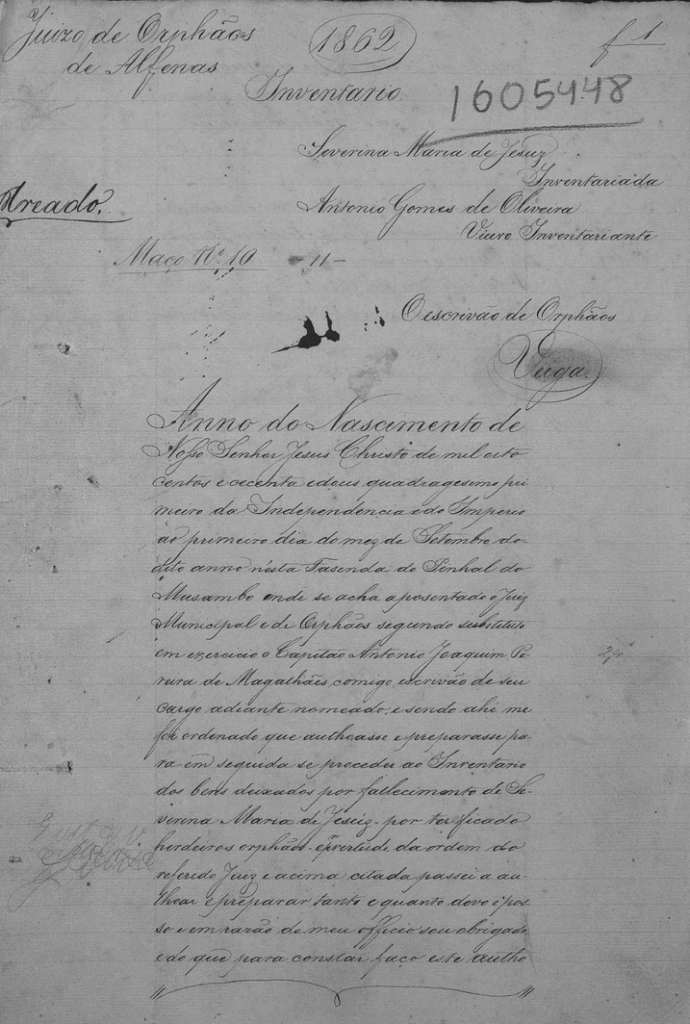 Juizo de Orphãos
de Alfenas
1862
f 1
Inventario.
1605448
Severina Maria de Jesuz
Inventariada
Areado.
Antonio Gomes de Oliveira
Viuvo Inventariante
Maço Nº 10 - 11 -
O escrivão de Orphãos
Veiga.
Anno do Nascimento de
Nosso Senhor Jesus Christo de mil oito
centos e cecenta e dous quadragesimo pri
meiro da Independencia e do Imperio
ao primeiro dia do mez de Setembro do
dito anno nésta Fasenda do Pinhal do
Musambo onde se acha aposentado o Juiz
Municipal e de Orphãos segundo substituto
em exercicio o Capitão Antonio Joaquim Pe
reira de Magalhães, comigo escrivão de seu
cargo adiante nomeado, e sendo ahi me
foi ordenado que authoasse e preparasse pa
ra em seguida se proceder ao Inventario
dos bens deixados por fallecimento de Se
verina Maria de Jesuiz por ter ficado
herdeiros orphãos. Em vertude da ordem do
referido Juiz e acima citada passei a au
thoar e preparar tanto e quanto devo e pos
so e em rasão de meu officio sou obrigado
e do que para constar faço este autho